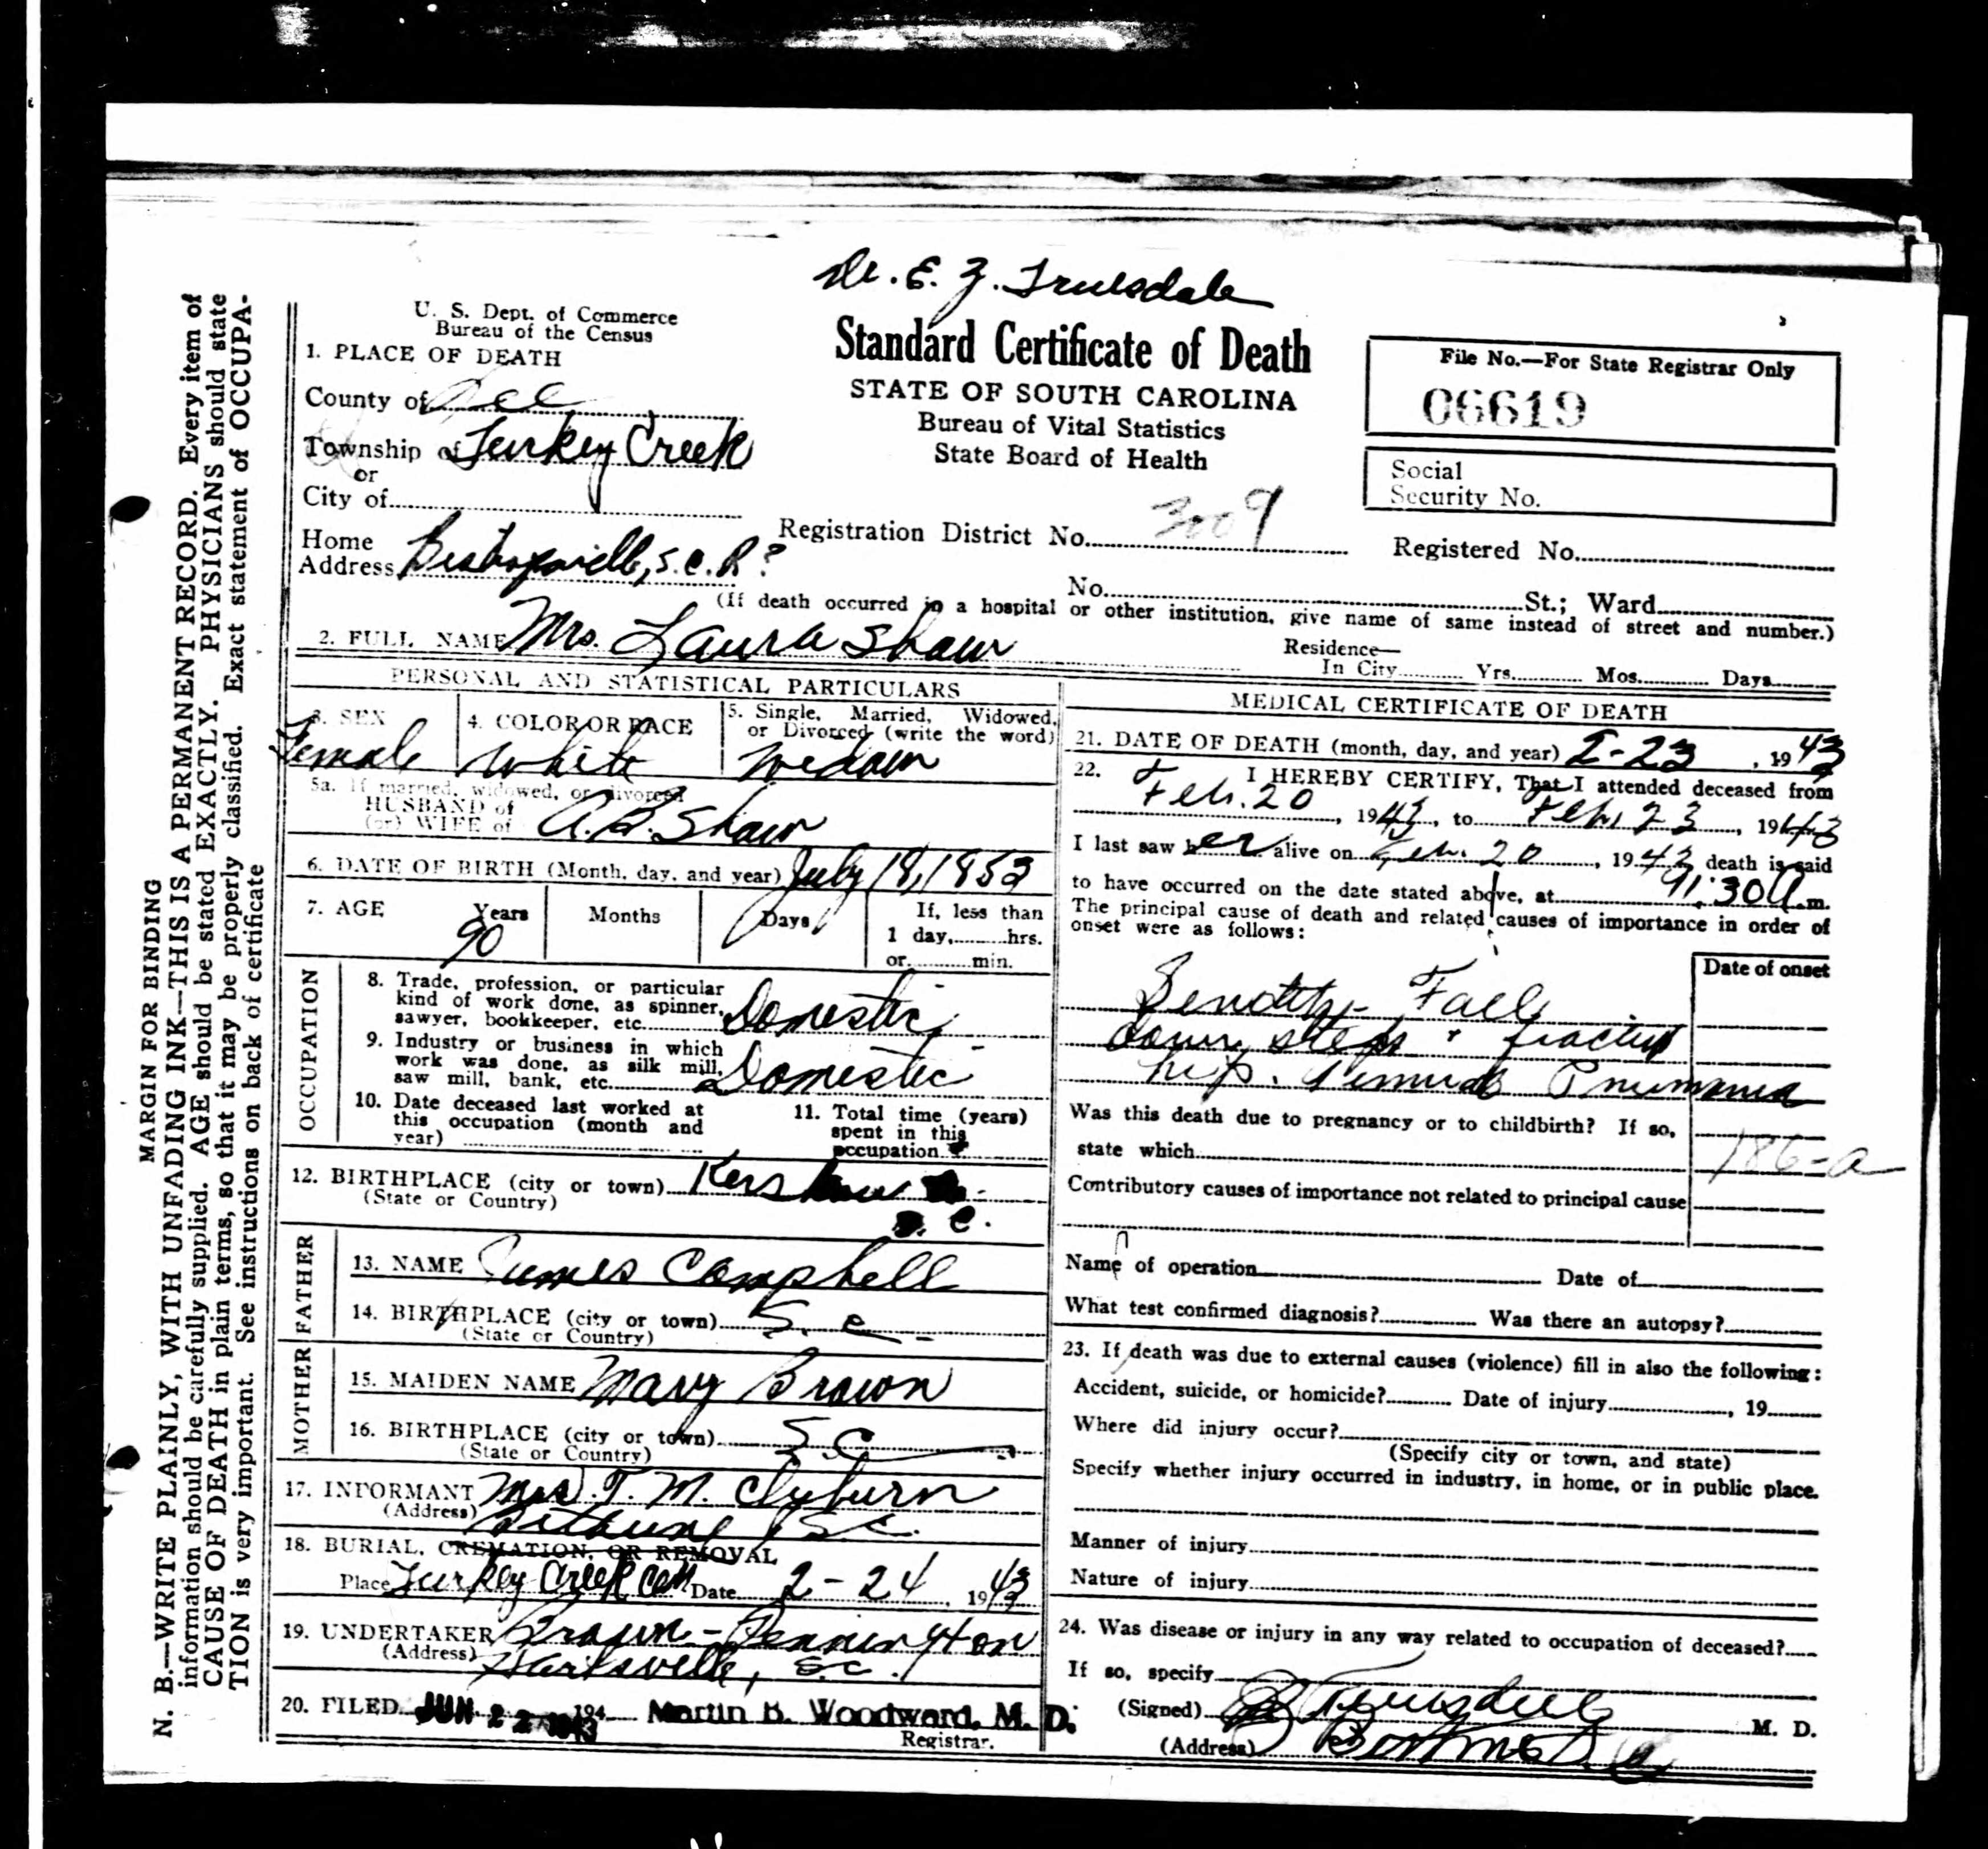 Dr. E. Z. Truesdale
U. S. Dept. of Commerce
Bureau of the Census
Standard Certificate of Death
STATE OF SOUTH CAROLINA
Bureau of Vital Statistics
State Board of Health
File No.—For State Registrar Only
06619
Social
Security No.
1. PLACE OF DEATH
County of Lee
Township of Turkey Creek
or
City of
Registration District No. 3009
Registered No.
Home
Address Bishopville, S.C. R?
No. St.; Ward
(If death occurred in a hospital or other institution, give name of same instead of street and number.)
2. FULL NAME Mrs. Laura Shaw
Residence—
In City Yrs. Mos. Days
PERSONAL AND STATISTICAL PARTICULARS
3. SEX
Female
4. COLOR OR RACE
White
5. Single, Married, Widowed,
or Divorced (write the word)
Widow
5a. If married, widowed, or divorced
HUSBAND of
(or) WIFE of A. B. Shaw
6. DATE OF BIRTH (Month, day, and year) July 18, 1853
7. AGE Years Months Days
90
If, less than
1 day, hrs.
or min.
OCCUPATION
8. Trade, profession, or particular
kind of work done, as spinner,
sawyer, bookkeeper, etc. Domestic
9. Industry or business in which
work was done, as silk mill,
saw mill, bank, etc. Domestic
10. Date deceased last worked at
this occupation (month and
year)
11. Total time (years)
spent in this
occupation
12. BIRTHPLACE (city or town) Kershaw
(State or Country) S. C.
FATHER
13. NAME James Campbell
14. BIRTHPLACE (city or town) S. C.
(State or Country)
MOTHER
15. MAIDEN NAME Mary Brown
16. BIRTHPLACE (city or town) S. C.
(State or Country)
17. INFORMANT Mrs. T. M. Clyburn
(Address) Bethune S.C.
18. BURIAL, CREMATION, OR REMOVAL
Place Turkey Creek Cem Date 2-24, 1943
19. UNDERTAKER Brown-Pennington
(Address) Hartsville, S.C.
20. FILED JUN 22 1943 194 Martin B. Woodward, M. D.
Registrar.
MEDICAL CERTIFICATE OF DEATH
21. DATE OF DEATH (month, day, and year) 2-23, 1943
22. I HEREBY CERTIFY, That I attended deceased from
Feb. 20, 1943, to Feb. 23, 1943
I last saw her alive on Feb. 20, 1943 death is said
to have occurred on the date stated above, at :30 A. m.
The principal cause of death and related causes of importance in order of
onset were as follows:
Date of onset
Senility - Fall
down steps & fractured
hip. Pneumonia
Was this death due to pregnancy or to childbirth? If so,
state which
186-a
Contributory causes of importance not related to principal cause
Name of operation Date of
What test confirmed diagnosis? Was there an autopsy?
23. If death was due to external causes (violence) fill in also the following:
Accident, suicide, or homicide? Date of injury, 19
Where did injury occur?
(Specify city or town, and state)
Specify whether injury occurred in industry, in home, or in public place.
Manner of injury
Nature of injury
24. Was disease or injury in any way related to occupation of deceased?
If so, specify
(Signed) Truesdale M. D.
(Address)
MARGIN FOR BINDING
N. B.—WRITE PLAINLY, WITH UNFADING INK—THIS IS A PERMANENT RECORD. Every item of
information should be carefully supplied. AGE should be stated EXACTLY. PHYSICIANS should state
CAUSE OF DEATH in plain terms, so that it may be properly classified. Exact statement of OCCUPA-
TION is very important. See instructions on back of certificate